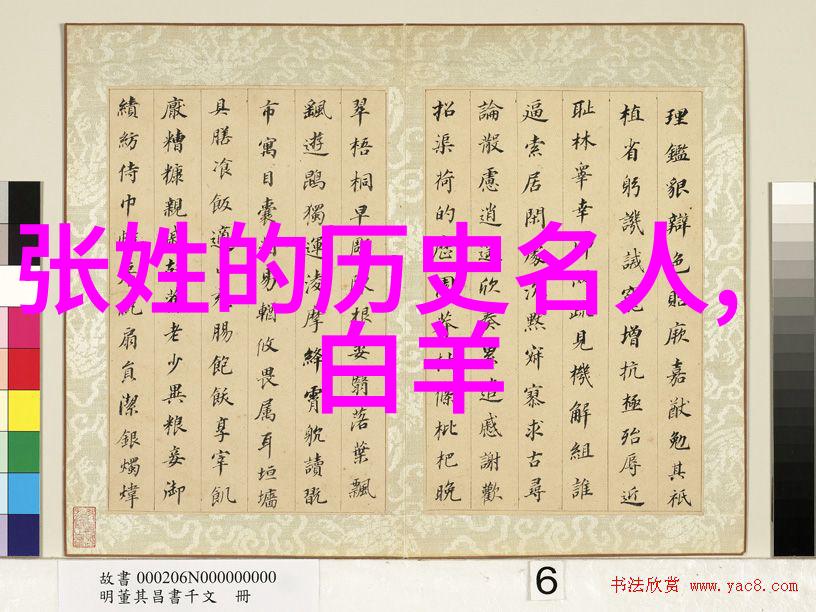 张姓的历史名人,
白羊
理鑑貌辯色貽厥嘉猷勉其祗
植省躬譏誡寵增抗極殆辱近
耻林睾幸疏見機解組誰
逼索居閑黙寂寥求古尋
論散慮逍欣奏累遣慼謝歡
招渠荷的園條枇杷晚
翠梧桐早根委翳落葉飄
颻遊鵾獨運凌摩絳霄躭讀翫
市寓目囊易輶攸畏属耳垣墻
具膳飡飯適腸飽飫享宰飢
厭糟糠親老少異粮妾御
績紡侍巾紈扇員潔銀燭煒
故書 000206N000000000
明董其昌書千文 冊
6
书法欣赏 www.yac8.com